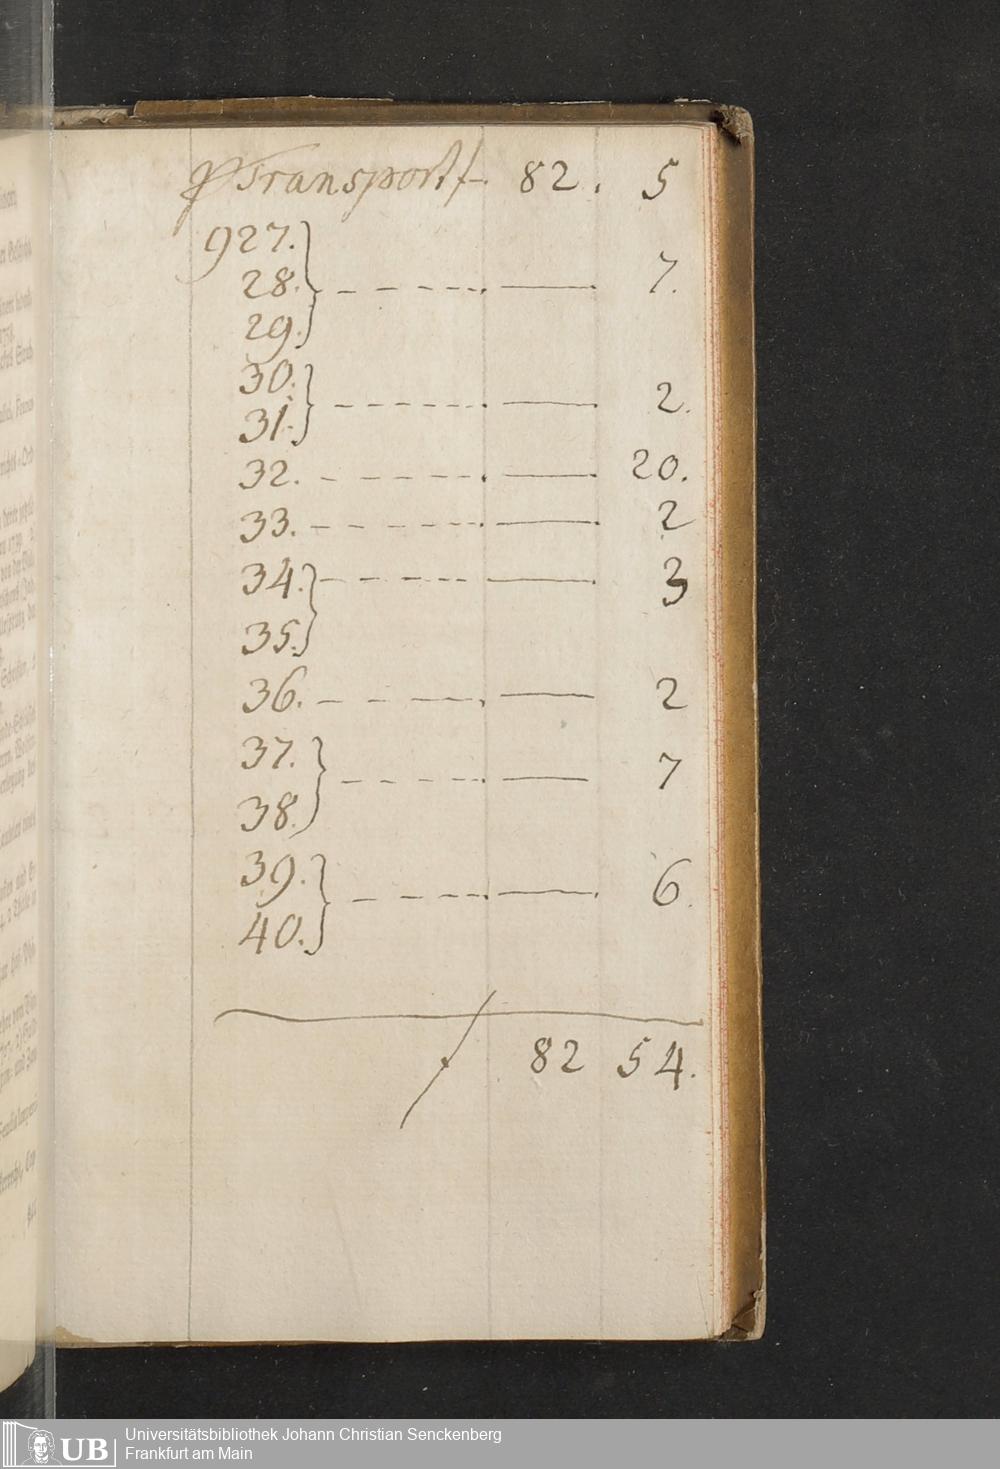 Transport f 82. 5
927.
28. 7.
29.
30.
31. 2.
32. 20.
33. 2
34. 3
35.
36. 2
37. 7
38.
39. 6.
40.
f 82 54.
UB Universitätsbibliothek Johann Christian Senckenberg
Frankfurt am Main